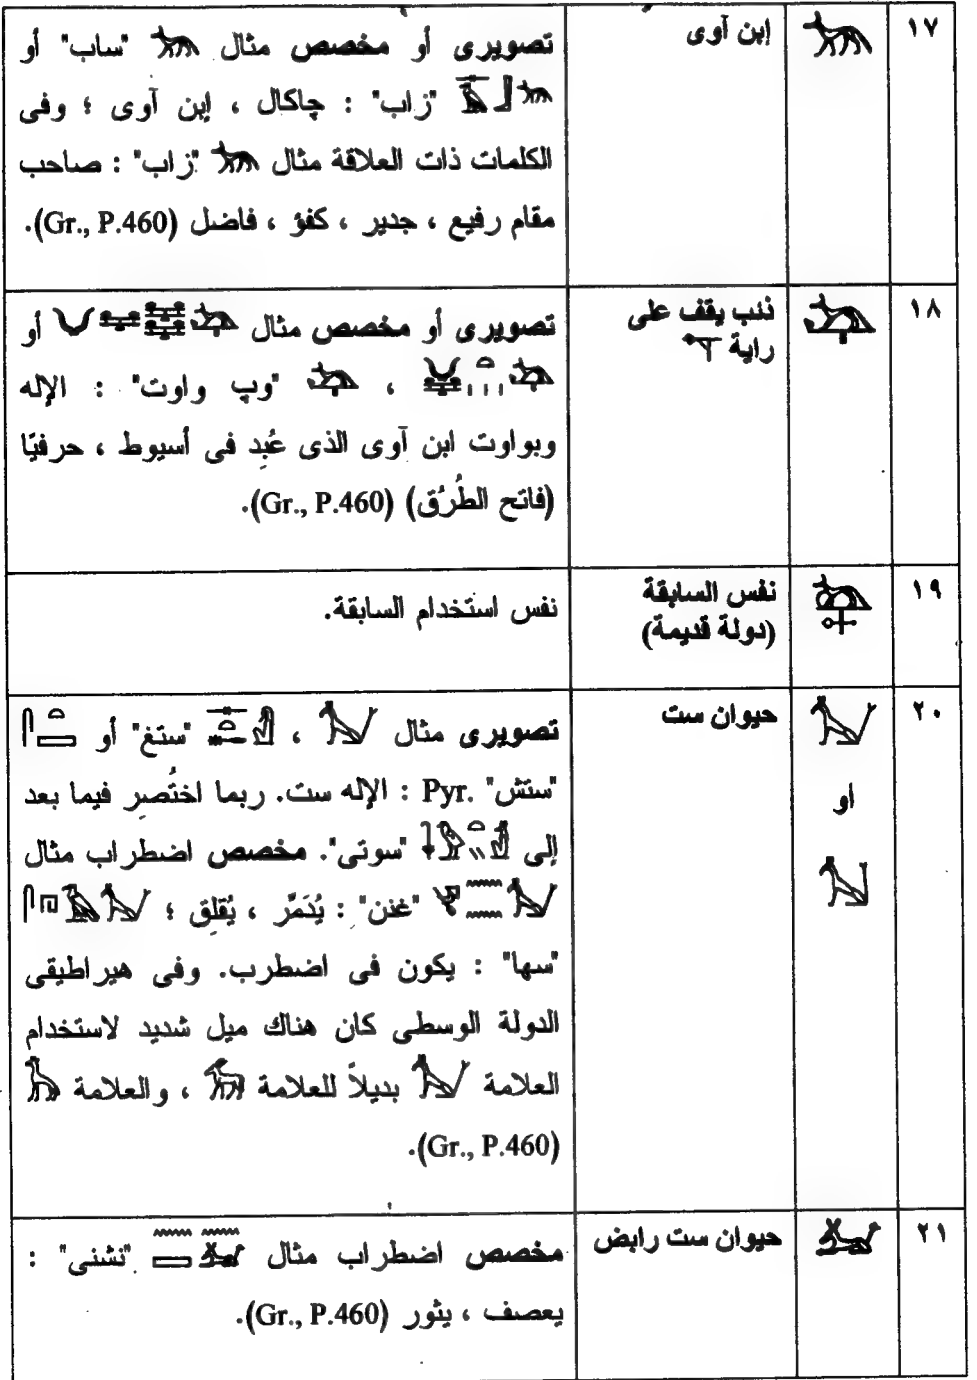 ١٧
إبن آوى
تصويرى أو مخصص مثال 𓃥 "ساب" أو
𓃥𓃀𓄿𓊃 "زاب" : چاكال ، إبن آوى ؛ وفى
الكلمات ذات العلاقة مثال 𓃥 "زاب" : صاحب
مقام رفيع ، جدير ، كفؤ ، فاضل (Gr., P.460).
١٨
ذئب يقف على
راية
تصويرى أو مخصص مثال أو
، "وپ واوت" : الإله
وبواوت ابن آوى الذى عُبِد فى أسيوط ، حرفيًا
(فاتح الطُرُق) (Gr., P.460).
١٩
نفس السابقة
(دولة قديمة)
نفس استخدام السابقة.
٢٠
أو
حيوان ست
تصويرى مثال ، "ستغ" أو
"ستش" Pyr. : الإله ست. ربما اختُصِر فيما بعد
إلى "سوتى". مخصص اضطراب مثال
"غنن" : يُدَمَّر ، يُقلِق ؛
"سها" : يكون فى اضطرب. وفى هيراطيقى
الدولة الوسطى كان هناك ميل شديد لاستخدام
العلامة بديلاً للعلامة ، والعلامة
(Gr., P.460).
٢١
حيوان ست رابض
مخصص اضطراب مثال "نشنى" :
يعصف ، يثور (Gr., P.460).